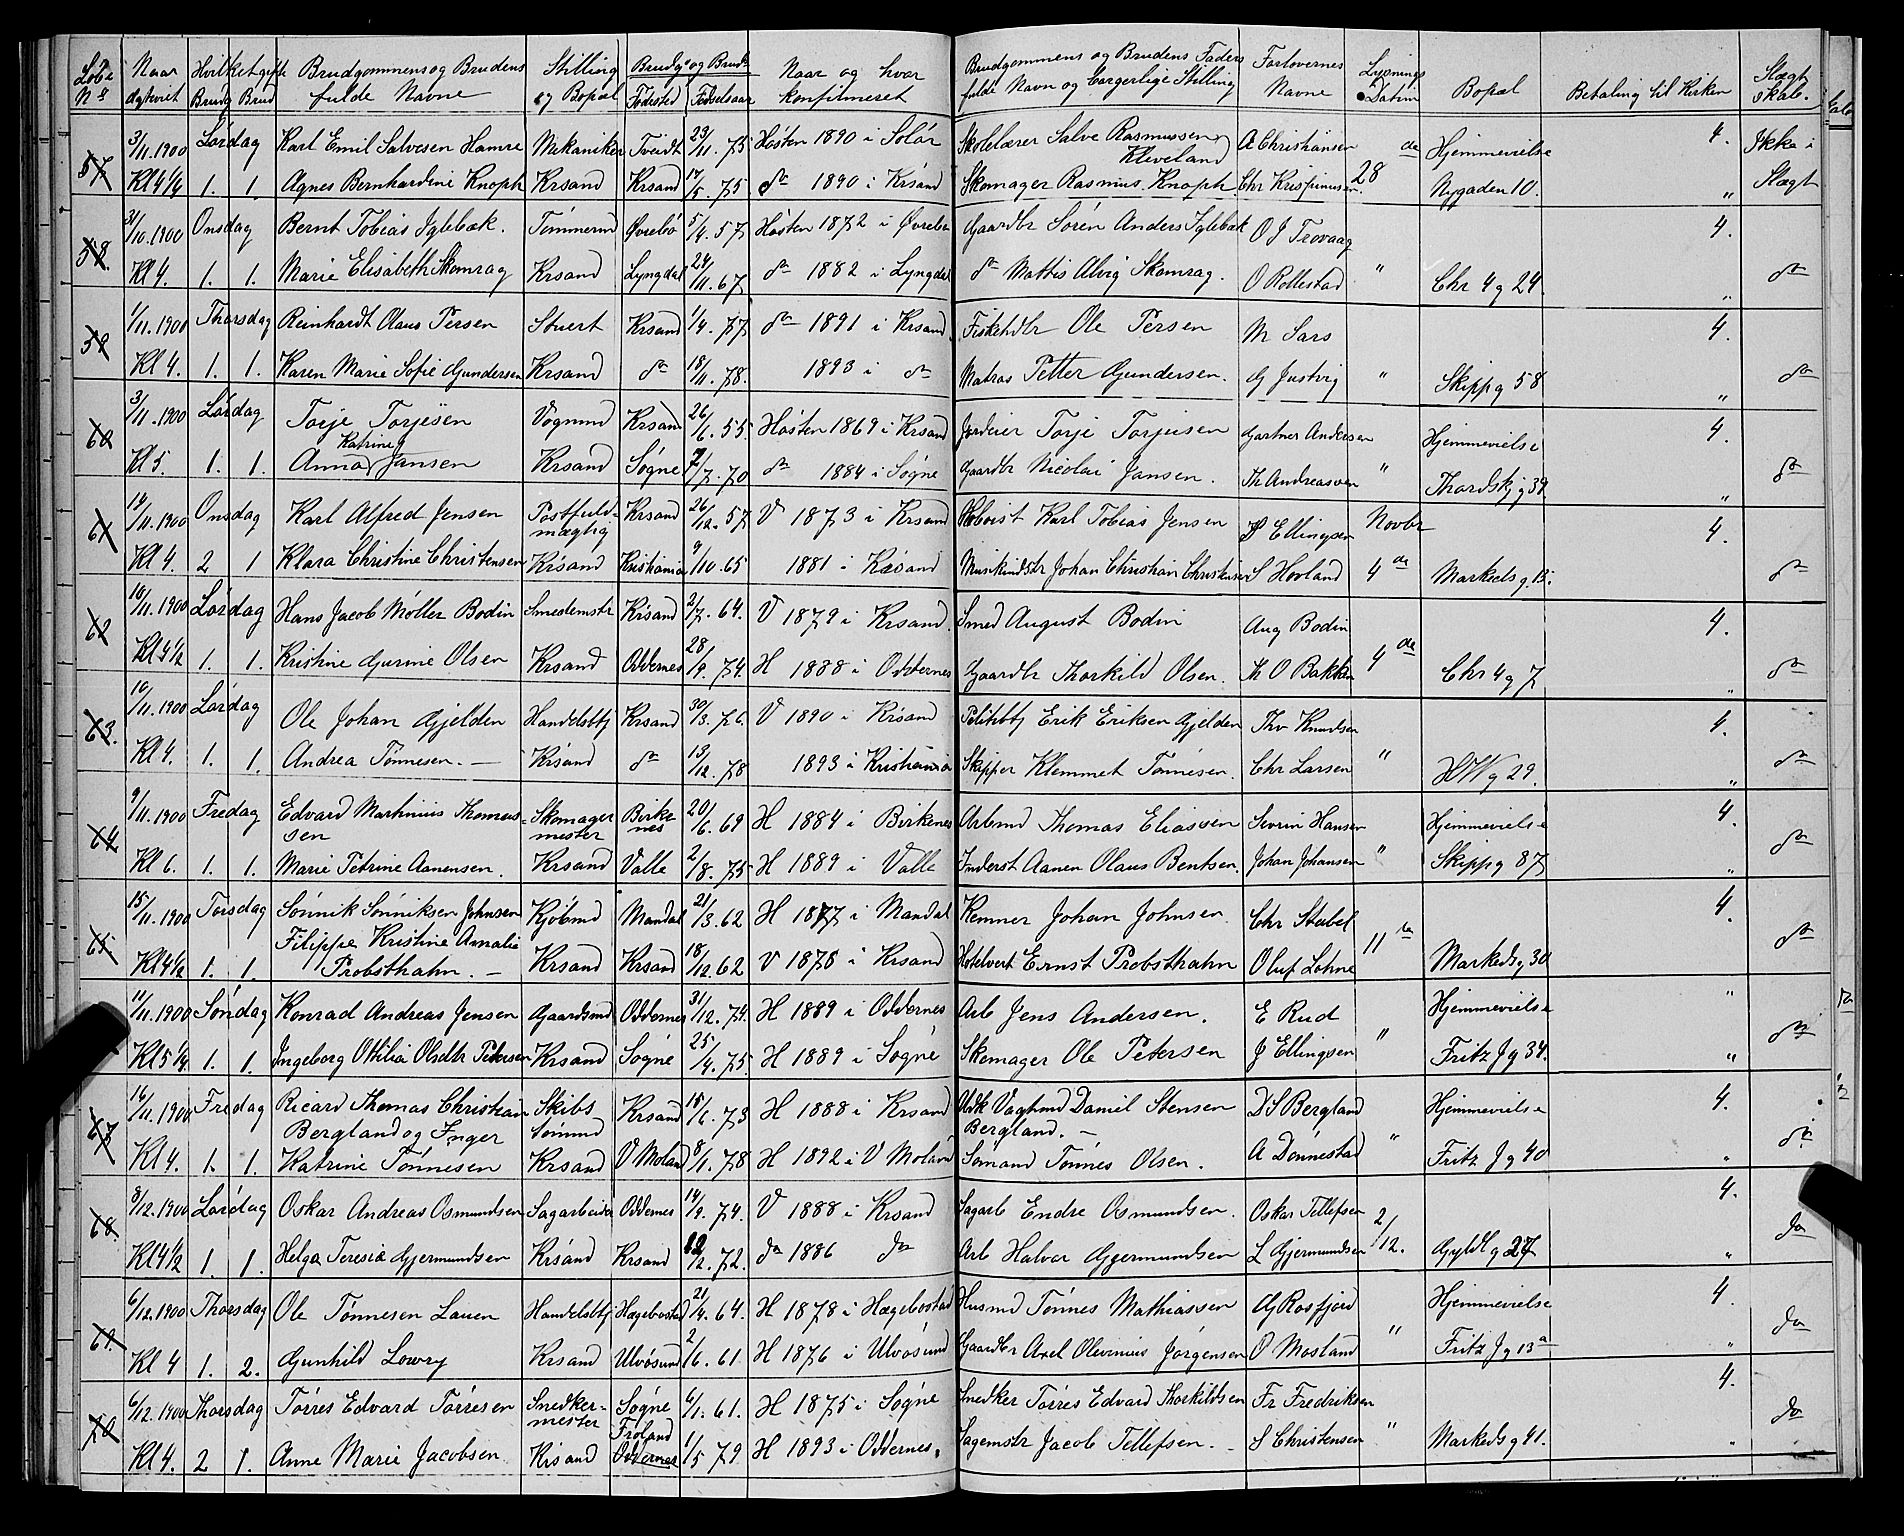 Løbe Naar Hvilket gifte Brudgommens og Brudens Stilling Brudg og Brud Naar og hvor Brudgommens og Brudens Faders Forlovernes Lysnings Bopæl Betaling til Kirken Slægt
No Brudg Brud fulde Navne og Bopæl Fødested Fødselsaar konfirmeret fulde Navn og borgerlige Stilling Navne Datum skab.
57 3/11.1900 Lørdag Karl Emil Salvesen Hamre Mekaniker Tveidt 23/11.75 Høsten 1890 i Solør Skolelærer Salve Rasmussen Kleveland A Christiansen de Hjemmevielse 4. Ikke i
Kl 4¼ 1. 1. Agnes Bernhardine Knoph Krsand Krsand 17/5.75 do 1890 i Krsand Skomager Rasmus Knoph Chr Krispinusen 28 Nygaden 10. " Slægt
58. 31/10.1900 Onsdag Bernt Tobias Iglebæk. Tømmermd Øvrebø 5/4.57 Høsten 1872 i Øvrebø Gaardbr Søren Anders Iglebæk O J Trovaag 4.
Kl 4. 1. 1. Marie Elisabeth Skomrag Krsand Lyngdal 24/11.67 do 1882 i Lyngdal do Mattis Alvig Skomrag. O Rollestad " Chr 4 g 24. " do
59 1/11.1900 Thorsdag Reinhardt Olaus Persen Stuert Krsand 1/9.77 do 1891 i Krsand Fiskehdlr Ole Persen M Sars 4.
Kl 4. 1. 1. Karen Marie Sofie Gundersen Krsand do 18/11.78. 1893 i do Matros Petter Gundersen. G Justvig " Skippg 58 " do
60 3/11.1900 Lørdag Torje Torjesen Vognmd Krsand 26/6.55. Høsten 1869 i Krsand Jordeier Torje Torjusen Gartner Andersen Hjemmevielse 4.
Kl 5. 1. 1. Anna Katrine Jansen Krsand Søgne 7/7.70 do 1884 i Søgne Gaardbr Nicolai Jansen. Th Andreassen " Thordskj g 39 " do
61 14/11.1900 Onsdag Karl Alfred Jensen Postfuldmægtig Krsand 26/12.57 V 1873 i Krsand Karl Tobias Jensen Ellingsen Novbr 4.
Kl 4. 2 1 Klara Christine Christensen Krsand Kristiania 9/10.65 1881 i Krsand Musikindstr Johan Christian Christensen S Hovland 4 de Markedsg. 15. do
62 10/11.1900 Lørdag Hans Jacob Møller Bodin Smedemstr Krsand 2/7.64. V 1879 i Krsand. Smed August Bodin Aug Bodin 4.
Kl 4½ 1. 1. Kristine Gurine Olsen Krsand Oddernes 28/9.74. H 1888 i Oddernes Gaardbr Thorkild Olsen. Th O Bakken 4 de Chr 4 g 7 " do
63. 10/11.1900 Lørdag Ole Johan Gjelden Handelsbtj Krsand 30/3.76. V 1890 i Krsand Politibtj Erik Eriksen Gjelden Thv Knudsen 4.
Kl 4. 1. 1. Andrea Tønnesen. — Krsand do 13/12.78 1893 i Kristiania Skipper Klemmet Tønnesen. Chr Larsen " H W g 29. " do
64 9/11.1900 Fredag Edvard Martinius Thomassen Skomagermester Birkenes 20/6.69 H 1884 i Birkenes Arbmd Thomas Eliassen Severin Hansen Hjemmevielse 4.
Kl 6. 1. 1. Marie Petrine Aanensen. Krsand Valle 2/8.75 H 1889 i Valle Inderst Aanen Olaus Bentsen. Johan Johansen " Skippg 87 " do
65 15/11.1900 Torsdag Sønnik Sønniksen Johnsen Kjøbmd Mandal 21/3.62 H 1877 i Mandal Kemner Johan Johnsen Chr Stabel 4.
Kl 4½ 1. 1. Filippe Kristine Amalie Probsthahn. — Krsand Krsand 18/12.62 V 1878 i Krsand Hotelvert Ernst Probsthahn Oluf Lohne 11 te Markedsg 30 do
11/11.1900 Søndag Konrad Andreas Jensen Gaardsmd Oddernes 31/12.74. H 1889 i Oddernes Arb Jens Andersen. E Rud Hjemmevielse "
Kl 5¼ 1. 1. Ingeborg Ottilia Olsdtr Petersen Krsand Søgne 25/4.75. H 1889 i Søgne Skomager Ole Petersen J Ellingsen " Fritz J g 34. " do
67 16/11.1900 Fredag Ricard Thomas Christian Bergland og Inger Skibs Tømmd Krsand 15/6.73 H 1888 i Krsand Daniel Stensen Bergland. — D S Bergland Hjemmevielse 4.
Kl 4. 1. 1. Katrine Tønnesen Krsand V Moland 8/1.78 H 1892 i V Moland Sømand Tønnes Olsen. A Dønnestad " Fritz J g 40 " do
68 8/12.1900 Lørdag Oskar Andreas Osmundsen Sagarbeider Oddernes 14/9.74. V 1888 i Krsand Sagarb Endre Osmundsen. Oskar Tellefsen 2/12. 4.
Kl 4½ 1. 1. Helga Teresia Gjermundsen Krsand Krsand 12/2.72. do 1886 do Arb Halvor Gjermundsen L Gjermundsen Gyldl g 27 " do
69. 6/12.1900 Thorsdag Ole Tønnesen Lauen Handelsbtj Hægebostad 21/4.64. H 1878 i Hægebostad Husmd Tønnes Mathiassen G Rosfjord Hjemmevielse 4.
Kl 4 1. 2. Gunhild Lowry Krsand Ulvøsund 2/6.61. H 1876 i Ulvøsund Gaardbr Axel Olevinius Jørgensen O Mosland " Fritz J g 13 a " do
70 6/12.1900 Thorsdag Tørres Edvard Tørresen Snedkermester Søgne 6/1.61. H 1875 i Søgne Snedker Tørres Edvard Thorkildsen Fr Fredriksen 4.
Kl 4. 2 1. Anne Marie Jacobsen Krsand Froland Oddernes 1/5 79 H 1893 i Oddernes. Sagemstr Jacob Tellefsen. S Christensen " Markedsg 41. " do